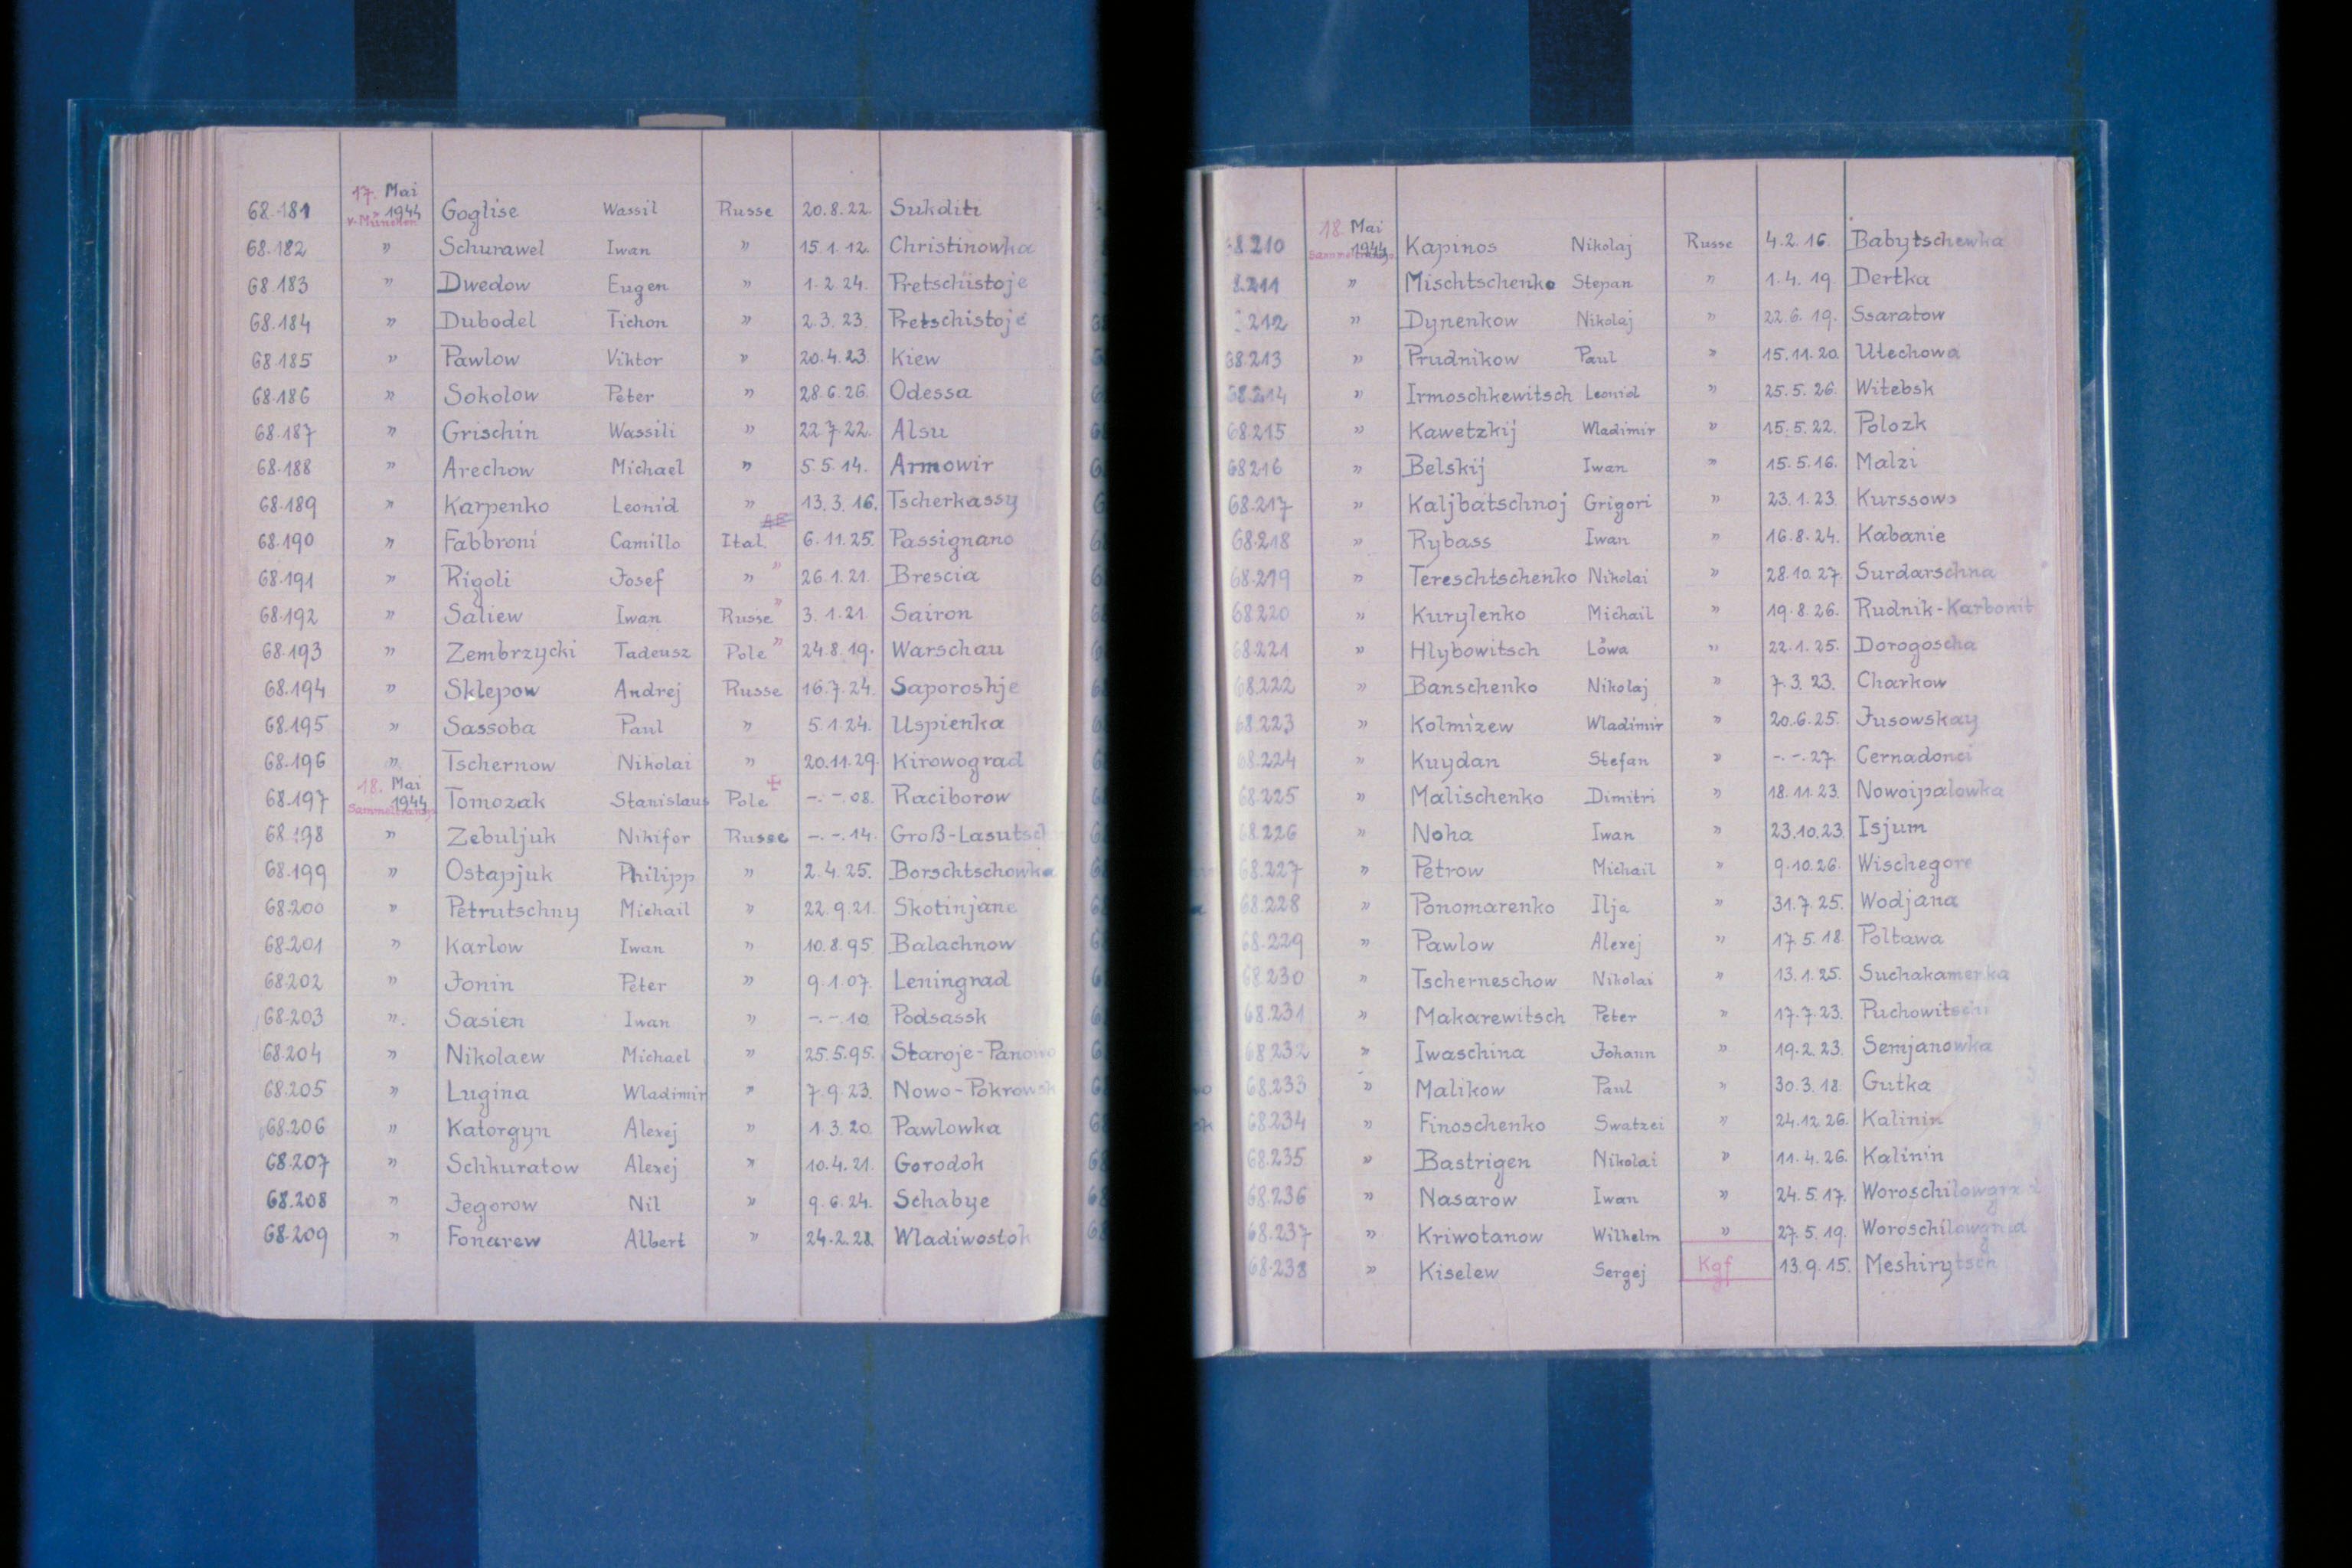 68.181 17. Mai 1944 v. München Goglise Wassil Russe 20.8.22. Sukditi
68.182 " Schurawel Iwan " 15.1.12. Christinowka
68.183 " Dwedow Eugen " 1.2.24. Pretschistoje
68.184 " Dubodel Tichon " 2.3.23. Pretschistoje
68.185 " Pawlow Viktor " 20.4.23. Kiew
68.186 " Sokolow Peter " 28.6.26. Odessa
68.187 " Grischin Wassili " 22.7.22. Alsu
68.188 " Arechow Michael " 5.5.14. Armowir
68.189 " Karpenko Leonid " 13.3.16. Tscherkassy
68.190 " Fabbroni Camillo Ital. 6.11.25. Passignano
68.191 " Rigoli Josef " " 26.1.21. Brescia
68.192 " Saliew Iwan Russe " 3.1.21. Sairon
68.193 " Zembrzycki Tadeusz Pole " 24.8.19. Warschau
68.194 " Sklepow Andrej Russe 16.7.24. Saporoshje
68.195 " Sassoba Paul " 5.1.24. Uspienka
68.196 " Tschernow Nikolai " 20.11.29. Kirowograd
68.197 18. Mai 1944 Sammeltransp. Tomozak Stanislaus Pole + -.-.08. Raciborow
68.198 " Zebuljuk Nikifor Russe -.-.14. Groß-Lasutsch
68.199 " Ostapjuk Philipp " 2.4.25. Borschtschowka
68.200 " Petrutschny Michail " 22.9.21. Skotinjane
68.201 " Karlow Iwan " 10.8.95 Balachnow
68.202 " Jonin Peter " 9.1.07. Leningrad
68.203 " Sasien Iwan " -.-.10. Podsassk
68.204 " Nikolaew Michael " 25.5.95. Staroje-Panowo
68.205 " Lugina Wladimir " 7.9.23. Nowo-Pokrowsk
68.206 " Katorgyn Alexej " 1.3.20. Pawlowka
68.207 " Schkuratow Alexej " 10.4.21. Gorodok
68.208 " Jegorow Nil " 9.6.24. Schabye
68.209 " Fonarew Albert " 24.2.28. Wladiwostok
68.210 18. Mai 1944 Sammeltransp. Kapinos Nikolaj Russe 4.2.16. Babytschewka
8.211 " Mischtschenko Stepan " 1.4.19. Dertka
212 " Dynenkow Nikolaj " 22.6.19. Ssaratow
68.213 " Prudnikow Paul " 15.11.20. Utechowa
68.214 " Irmoschkewitsch Leonid " 25.5.26. Witebsk
68.215 " Kawetzkij Wladimir " 15.5.22. Polozk
68.216 " Belskij Iwan " 15.5.16. Malzi
68.217 " Kaljbatschnoj Grigori " 23.1.23. Kurssowo
68.218 " Rybass Iwan " 16.8.24. Kabanie
68.219 " Tereschtschenko Nikolai " 28.10.27. Surdarschna
68.220 " Kurylenko Michail " 19.8.26. Rudnik-Karbonit
68.221 " Hlybowitsch Löwa " 22.1.25. Dorogoscha
68.222 " Banschenko Nikolaj " 7.3.23. Charkow
68.223 " Kolmizew Wladimir " 20.6.25. Jusowskay
68.224 " Kuydan Stefan " -.-.27. Cernadonci
68.225 " Malischenko Dimitri " 18.11.23. Nowoipalowka
68.226 " Noha Iwan " 23.10.23. Isjum
68.227 " Petrow Michail " 9.10.26. Wischegore
68.228 " Ponomarenko Ilja " 31.7.25. Wodjana
68.229 " Pawlow Alexej " 17.5.18. Poltawa
68.230 " Tscherneschow Nikolai " 13.1.25. Suchakamerka
68.231 " Makarewitsch Peter " 17.7.23. Puchowitschi
68.232 " Iwaschina Johann " 19.2.23. Semjanowka
68.233 " Malikow Paul " 30.3.18. Gutka
68.234 " Finoschenko Swatzei " 24.12.26. Kalinin
68.235 " Bastrigen Nikolai " 11.4.26. Kalinin
68.236 " Nasarow Iwan " 24.5.17. Woroschilowgrad
68.237 " Kriwotanow Wilhelm " 27.5.19. Woroschilowgrad
68.238 " Kiselew Sergej Kgf 13.9.15. Meshirytsch